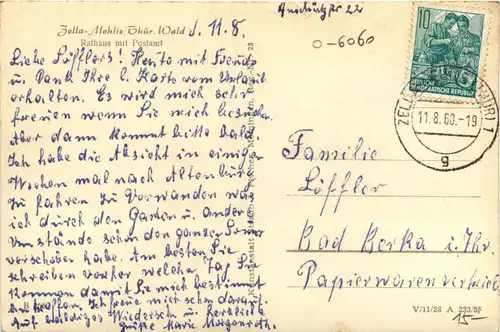 Zella-Mehlis/Thür. Wald
Rathaus mit Postamt
d. 11.8.
Liebe Löfflers! Heute mit Freude
u. Dank Ihre l. Karte vom Urlaub
erhalten. Es wird mich sehr
freuen wenn Sie mich besuchen
Aber dann kommt bitte bald.
Ich habe die Absicht in einigen
Wochen mal nach Altenburg
zu fahren. Zu Verwandten was
ich durch den Garten u. andere
Umstände schon den ganzen Sommer
verschoben habe. Am besten Sie
schreiben vorher welchen Tag Sie
kommen damit Sie mich bestimmt
antreffen. Ich freue mich schon darauf.
Auf baldiges Wiedersehn u. herzliche
Grüße Marie Morgenroth.
22
0-6060
10
5
DEUTSCHE
DEMOKRATISCHE REPUBLIK
11.8.60.-19
g
Familie
Löffler
Bad Berka i. Thr.
Papierwarenvertrieb.
V/11/28 A 233/58
15-